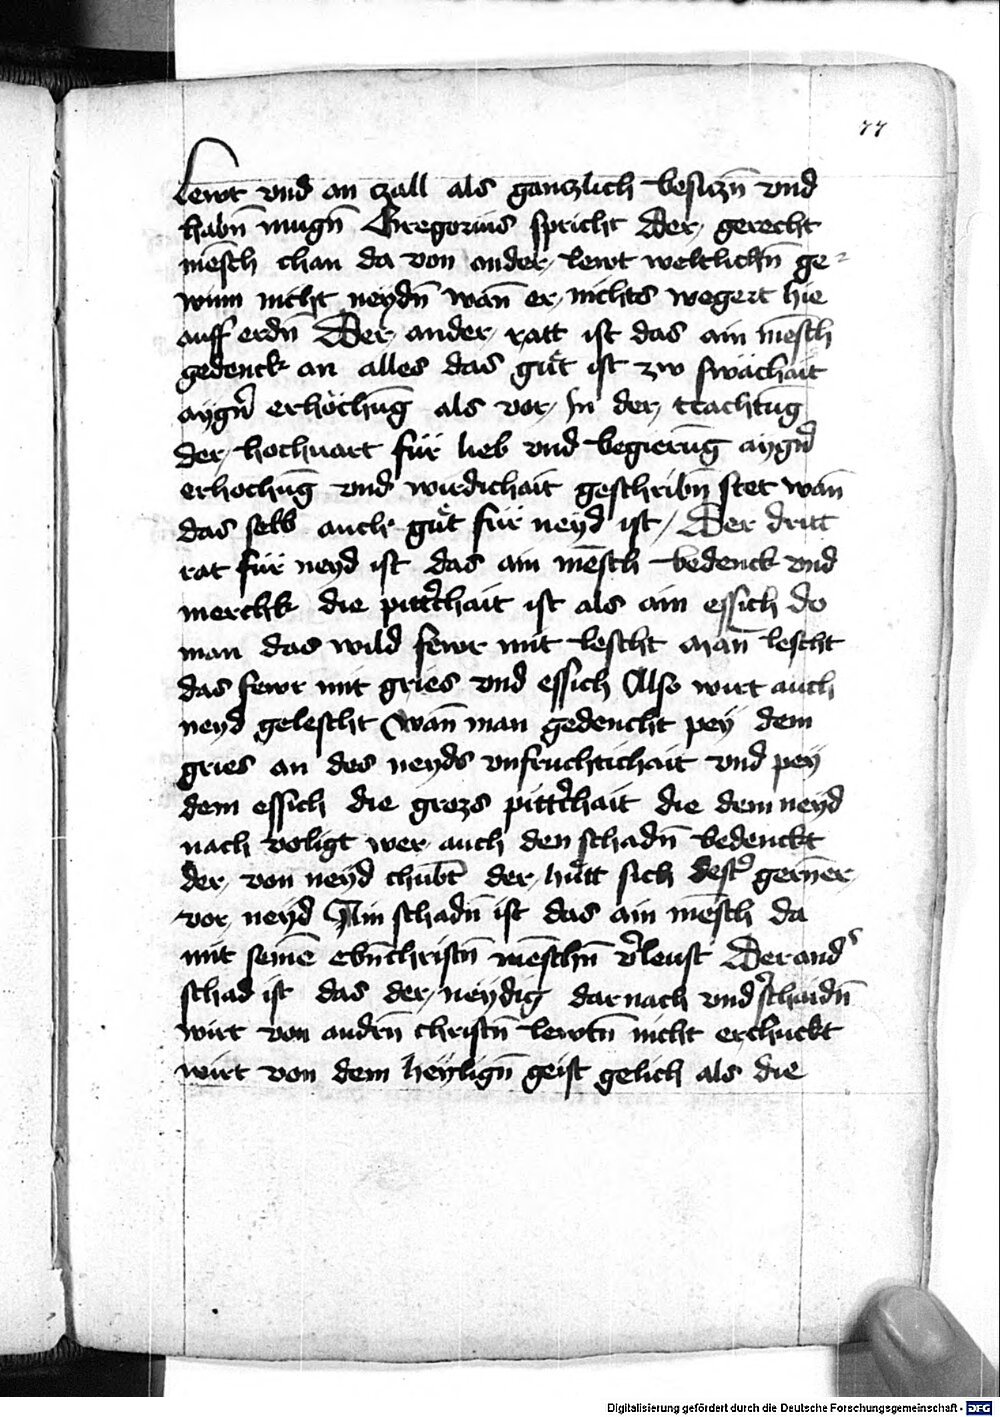 77
lewt vnd an czall als ganczlich besiczn̄ vnd
habn̄ mugn̄ Gregorius spricht Der gerecht
mēsch chan da von ander lewt weltlichn̄ ge-
winn nicht neydn̄ wan̄ er nichts wegert hie
auff erdn̄ Der ander ratt ist das ain mēsch
gedenck an alles das guͤt ist zw swächait
aygn̄ erhöchūg als vor in der trachtūg
der hochuart für lieb vnd begierūg aygn̄
erhochūg vnd wirdichait geschribn̄ stet wan̄
das selb auch guͤt für neyd ist / Der dritt
rat für neyd ist das ain mēsch bedenck vnd
merchk die pittͤchait ist als ain essich do
man das wild fewr mit lescht Man̄ lescht
das fewr mit gries vnd essich Also wirt auch
neyd gelescht Wan̄ man gedencht pey dem
gries an des neyds vnfruchtichait vnd pey
dem essich die grozs pittͤchait die dem neyd
nach voligt wer auch den schadn̄ bedenckt
der von neyd chūbt der huͤtt sich destˀ gernēr
vor neyd Ain schadn̄ ist das ain mēsch da
mit seinē ebn̄christn̄ mēschn̄ vˀleust Der andˀ
schad ist das der neydig darnach vnd schaidn̄
wirt von andrn̄ christn̄ lewtn̄ nicht erchuckt
wirt von dem heylign̄ geist gelich als die
Digitalisierung gefördert durch die Deutsche Forschungsgemeinschaft - DFG